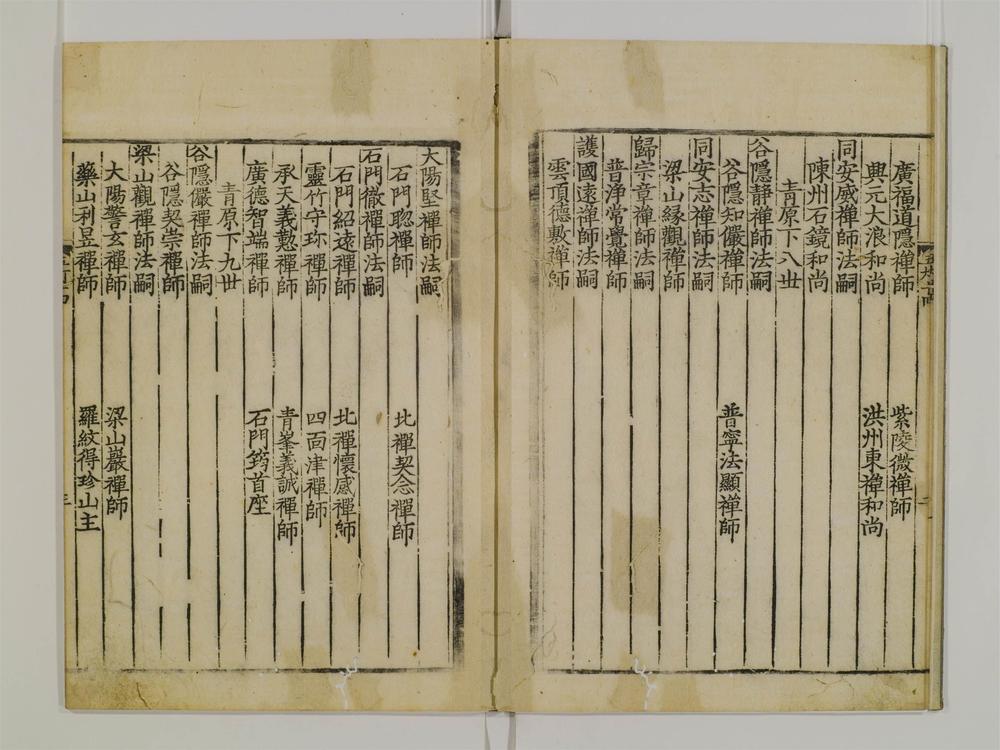 廣福道隱禪師　紫陵微禪師
興元大浪和尚　洪州東禪和尚
同安威禪師法嗣
陳州石鏡和尚
青原下八丗
谷隱靜禪師法嗣
谷隱知儼禪師　普寧法顯禪師
同安志禪師法嗣
梁山緣觀禪師
歸宗章禪師法嗣
普淨常覺禪師
護國遠禪師法嗣
雲頂德敷禪師
大陽堅禪師法嗣
石門聦禪師　北禪契念禪師
石門徹禪師法嗣
石門紹遠禪師　北禪懷感禪師
靈竹守珎禪師　四面津禪師
承天義懃禪師　青峯義誠禪師
廣德智端禪師　石門筠首座
青原下九丗
谷隱儼禪師法嗣
谷隱契崇禪師
梁山觀禪師法嗣
大陽警玄禪師　梁山巖禪師
藥山利昱禪師　羅紋得珍山主
三